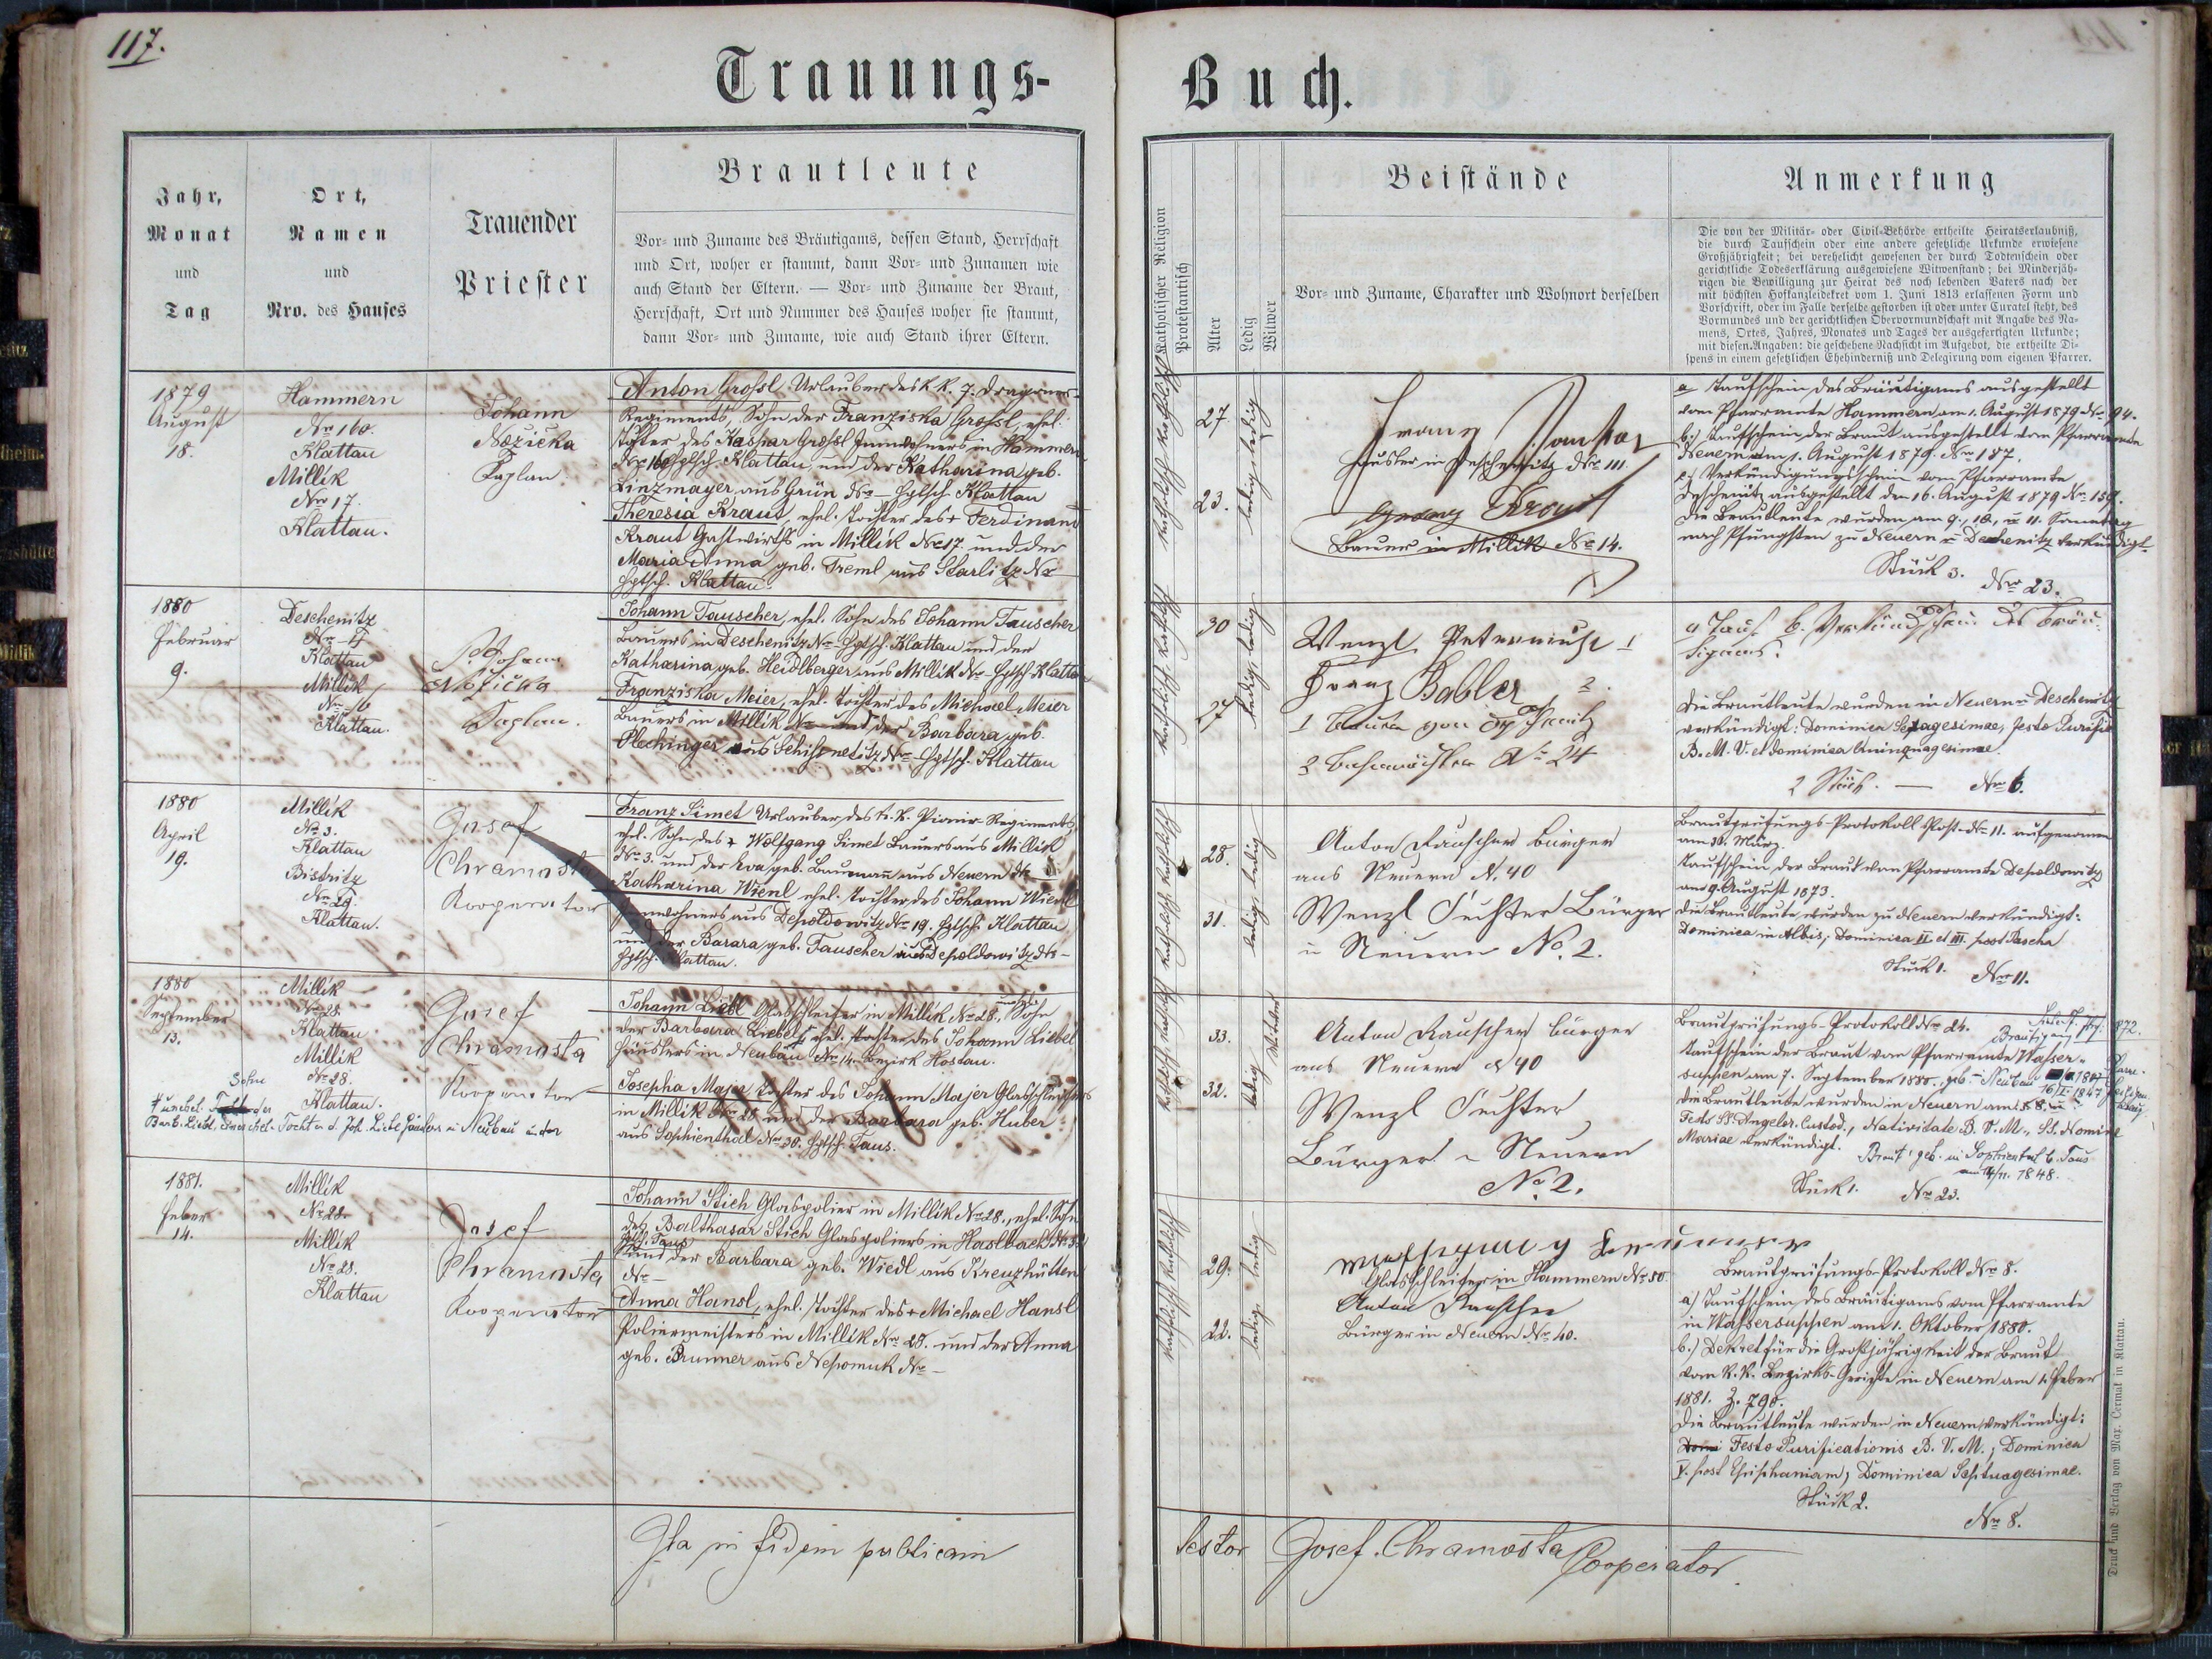 117.
Trauungs-
Buch.
Jahr,
Monat
und
Tag
Ort,
Namen
und
Nro. des Hauses
Trauender
Priester
Brautleute
Vor- und Zuname des Bräutigams, dessen Stand, Herrschaft
und Ort, woher er stammt, dann Vor- und Zunamen wie
auch Stand der Eltern. — Vor- und Zuname der Braut,
Herrschaft, Ort und Nummer des Hauses woher sie stammt,
dann Vor- und Zuname, wie auch Stand ihrer Eltern.
Katholischer Religion
Protestantisch
Alter
Ledig
Witwer
Beistände
Vor- und Zuname, Charakter und Wohnort derselben
Anmerkung
Die von der Militär- oder Civil-Behörde ertheilte Heiratserlaubniß,
die durch Taufschein oder eine andere gesetzliche Urkunde erwiesene
Großjährigkeit; bei verehelicht gewesenen der durch Todtenschein oder
gerichtliche Todeserklärung ausgewiesene Witwenstand; bei Minderjäh-
rigen die Bewilligung zur Heirat des noch lebenden Vaters nach der
mit höchsten Hofkanzleidekret vom 1. Juni 1813 erlassenen Form und
Vorschrift, oder im Falle derselbe gestorben ist oder unter Curatel steht, des
Vormundes und der gerichtlichen Obervormundschaft mit Angabe des Na-
mens, Ortes, Jahres, Monates und Tages der ausgefertigten Urkunde;
mit diesen Angaben: die geschehene Nachsicht im Aufgebot, die ertheilte Di-
spens in einem gesetzlichen Ehehinderniß und Delegirung vom eigenen Pfarrer.
1879
August
18.
Hammern
No 160.
Klattau
Millik
No 17.
Klattau.
Johann
Nozička
Kaplan.
Anton Grossl Urlauber des k. k. 7. Dragoner-
Regiments, Sohn der Franziska Grossl, ehel.
Tochter des Kaspar Grossl Inwohners in Hammern
No 160 Hptsch. Klattau, und der Katharina geb.
Linzmayer aus Grün No — Hptsch. Klattau
Theresia Kraus, ehel. Tochter des + Ferdinand
Kraus Gastwirths in Millik No 17. und der
Maria Anna geb. Treml aus Starlitz No
Hptsch. Klattau.
27.
23.
ledig
ledig
Franz
Häusler in Deschenitz No 111.
Georg
Bauer in Millik No 14.
a Taufschein des Bräutigams ausgestellt
vom Pfarramte Hammern am 1. August 1879 No 94.
b.) Taufschein der Braut ausgestellt vom Pfarramte
Neuern am 1. August 1879. No 187.
c.) Verkündigungsschein vom Pfarramte
Deschenitz ausgestellt den 16. August 1879 No
Die Brautleute wurden am 9., 10., u 11. Sonntag
nach Pfingsten zu Neuern u Deschenitz verkündigt.
Stück 3. No 23.
1880
Februar
9.
Deschenitz
No
Klattau
Millik
No 6
Klattau.
P. Johann
Nozička
Kaplan.
Johann Tauscher, ehel. Sohn des Johann Tauscher
Bauers in Deschenitz No Hptsch. Klattau und der
Katharina geb. Heidlberger aus Millik No Hptsch. Klattau
Franziska Meier, ehel. Tochter des Michael Meier
Bauers in Millik No und der Barbara geb.
Plechinger aus No — Hptsch. Klattau
30
27
ledig
ledig
Wenzl 1
Franz Babler 2.
1 Bauer von
2 Bahnwächter No 24
a Tauf- b. Verkündschein des Bräu-
tigams.
Die Brautleute wurden in Neuern u Deschenitz
verkündigt: Dominica Sexagesimae, festo Purific
B. M. V. et Dominica Quinquagesimae.
2 Stück. — No 6.
1880
April
19.
Millik
No 3.
Klattau
Bistritz
No 29.
Klattau.
Josef
Chramosta
Kooperator
Franz Simet Urlauber des k. k. Pionir-Regiments,
ehel. Sohn des + Wolfgang Simet Bauers aus Millik
No 3. und der Eva geb. Baumann aus Neuern No
Katharina Wienl, ehel. Tochter des Johann Wienl
Inwohners aus Depoldowitz No 19. Hptsch. Klattau
und der Barara geb. Tauscher aus Depoldowitz No —
Hptsch. Klattau.
28.
31.
ledig
ledig
Anton Rauscher Bürger
aus Neuern N. 40
Wenzl Bürger
in Neuern No. 2.
Brautprüfungs-Protokoll Post-No 11. aufgenomen
am 30. März.
Taufschein der Braut vom Pfarramte Depoldowitz
am 9. August 1873.
Die Brautleute wurden zu Neuern verkündigt:
Dominica in Albis, Dominica II et III. post Pascha
Stück 1. No 11.
1880
September
13.
Millik
No 28.
Klattau
Millik
No 28.
Klattau.
Josef
Chramosta
Kooperator
Johann Liebl Glasschleifer in Millik No 28., unehel. Sohn
der Barbara Liebel, ehel. Tochter des Johann Liebel
Häuslers in Neubau No 14 Bezirk Hostau.
Josepha Majer, Tochter des Johann Majer Glasschleifers
in Millik No 28 und der Barbara geb. Huber
aus Sophienthal No 30. Hptsch. Taus.
Sohn
+ unehel. der
Barb. Liebl, einer ehel. Tochter d. Joh. Liebl Häuslers in Neubau
33.
32.
ledig
Witwer
Anton Rauscher Bürger
aus Neuern N 40
Wenzl
Bürger in Neuern
No. 2.
Brautprüfungs-Protokoll No 24.
Taufschein der Braut vom Pfarramte Wasser-
suppen am 7. September 1880.
Bräutigam geb. in Neubau 16/II 1847
Die Brautleute wurden in Neuern am 5. 8. u
Festo SS. Angelor. Custod., Nativitate B. V. M., SS. Nomine
Mariae verkündigt.
Braut geb. in Sophiental b. Taus
am 14/11. 1848.
Stück 1. No 23.
1881.
Feber
14.
Millik
No 28.
Millik
No 28.
Klattau
Josef
Chramosta
Kooperator
Johann Stich Glaspolier in Millik No 28., ehel. Sohn
des Balthasar Stich Glaspoliers in Haslbach No
Hptsch. Taus
und der Barbara geb. Wiedl aus Kreuzhütten
No —
Anna Hansl, ehel. Tochter des + Michael Hansl
Poliermeisters in Millik No 28. und der Anna
geb. Brunner aus Nepomuk No —
29.
22.
ledig
ledig
Wolfgang
Glasschleifer in Hammern No 50.
Anton Rauscher
Bürger in Neuern No 40.
Brautprüfungs-Protokoll No 8.
a) Taufschein des Bräutigams vom Pfarramte
in Wassersuppen am 1. Oktober 1880.
b.) Dekret für die Großjährigkeit der Braut
vom k. k. Bezirks-Gerichte in Neuern am 1. Feber
1881. Z. 798.
Die Brautleute wurden in Neuern verkündigt:
Festo Purificationis B. V. M., Dominica
V. post Epiphaniam, Dominica Septuagesimae.
Stück 2.
No 8.
Ita in fidem publicam
testor Josef Chramosta Cooperator.
Druck und Verlag von Max. Cermak in Klattau.